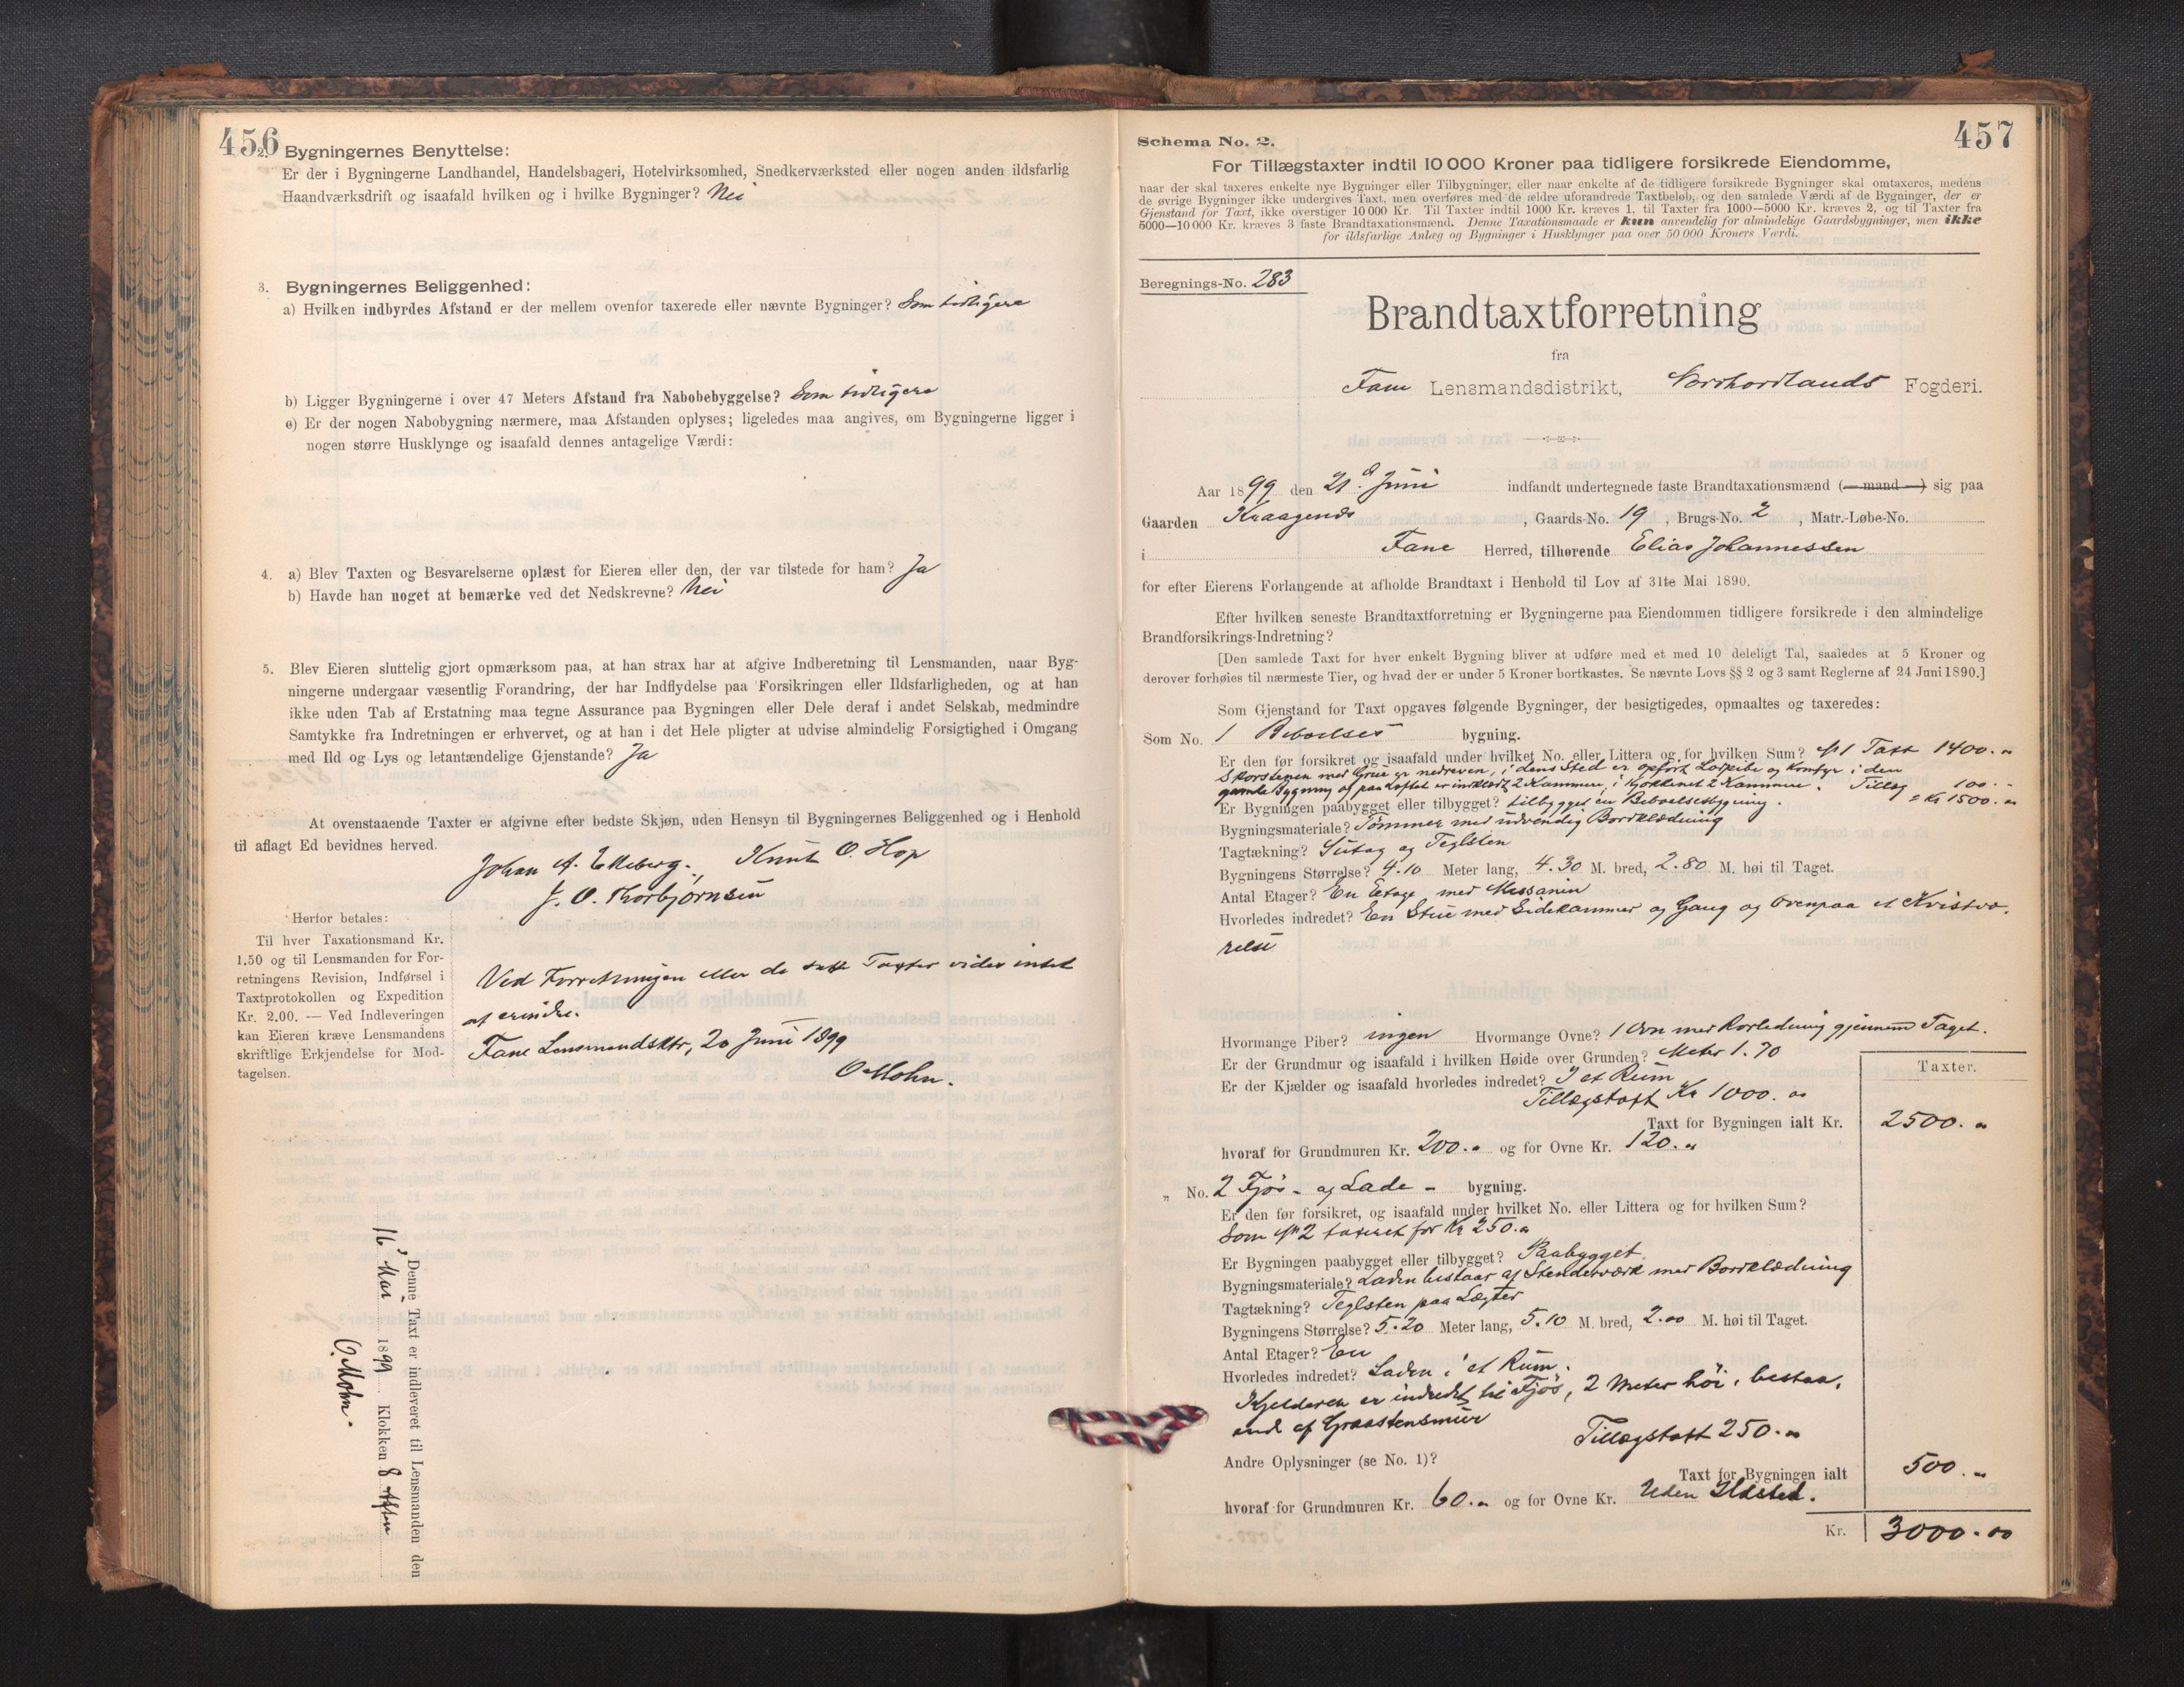 456
2. Bygningernes Benyttelse:
Er der i Bygningerne Landhandel, Handelsbageri, Hotelvirksomhed, Snedkerværksted eller nogen anden ildsfarlig
Haandværksdrift og isaafald hvilken og i hvilke Bygninger? Nei
3. Bygningernes Beliggenhed:
a) Hvilken indbyrdes Afstand er der mellem ovenfor taxerede eller nævnte Bygninger? Som tidligere
b) Ligger Bygningerne i over 47 Meters Afstand fra Nabobebyggelse? Som tidligere
c) Er der nogen Nabobygning nærmere, maa Afstanden oplyses; ligeledes maa angives, om Bygningerne ligger i
nogen større Husklynge og isaafald dennes antagelige Værdi:
4. a) Blev Taxten og Besvarelserne oplæst for Eieren eller den, der var tilstede for ham? Ja
b) Havde han noget at bemærke ved det Nedskrevne? Nei
5. Blev Eieren sluttelig gjort opmærksom paa, at han strax har at afgive Indberetning til Lensmanden, naar Byg-
ningerne undergaar væsentlig Forandring, der har Indflydelse paa Forsikringen eller Ildsfarligheden, og at han
ikke uden Tab af Erstatning maa tegne Assurance paa Bygningen eller Dele deraf i andet Selskab, medmindre
Samtykke fra Indretningen er erhvervet, og at han i det Hele pligter at udvise almindelig Forsigtighed i Omgang
med Ild og Lys og letantændelige Gjenstande? Ja
At ovenstaaende Taxter er afgivne efter bedste Skjøn, uden Hensyn til Bygningernes Beliggenhed og i Henhold
til aflagt Ed bevidnes herved.
Johan A. Knut O. Hop
J. O. Thorbjørnsen
Herfor betales:
Til hver Taxationsmand Kr.
1.50 og til Lensmanden for For-
retningens Revision, Indførsel i
Taxtprotokollen og Expedition
Kr. 2.00. — Ved Indleveringen
kan Eieren kræve Lensmandens
skriftlige Erkjendelse for Mod-
tagelsen.
Ved Forretningen eller de satte Taxter vides intet
at erindre.
Fane Lensmandsktr, 20 Juni 1899
O Mohn.
Denne Taxt er indleveret til Lensmanden den
16' Mai 1899 Klokken 8 Aften
O. Mohn.
457
Schema No. 2.
For Tillægstaxter indtil 10 000 Kroner paa tidligere forsikrede Eiendomme,
naar der skal taxeres enkelte nye Bygninger eller Tilbygninger, eller naar enkelte af de tidligere forsikrede Bygninger skal omtaxeres, medens
de øvrige Bygninger ikke undergives Taxt, men overføres med de ældre uforandrede Taxtbeløb, og den samlede Værdi af de Bygninger, der er
Gjenstand for Taxt, ikke overstiger 10 000 Kr. Til Taxter indtil 1000 Kr. kræves 1, til Taxter fra 1000—5000 Kr. kræves 2, og til Taxter fra
5000—10 000 Kr. kræves 3 faste Brandtaxationsmænd. Denne Taxationsmaade er kun anvendelig for almindelige Gaardsbygninger, men ikke
for ildsfarlige Anlæg og Bygninger i Husklynger paa over 50 000 Kroners Værdi.
Beregnings-No. 283
Brandtaxtforretning
fra
Fane Lensmandsdistrikt, Nordhordlands Fogderi.
Aar 1899 den 21d Juni indfandt undertegnede faste Brandtaxationsmænd (— mand —) sig paa
Gaarden Kraagenes, Gaards-No. 19, Brugs-No. 2, Matr.-Løbe-No.
i Fane Herred, tilhørende Elias Johannessen
for efter Eierens Forlangende at afholde Brandtaxt i Henhold til Lov af 31te Mai 1890.
Efter hvilken seneste Brandtaxtforretning er Bygningerne paa Eiendommen tidligere forsikrede i den almindelige
Brandforsikrings-Indretning?
[Den samlede Taxt for hver enkelt Bygning bliver at udføre med et med 10 deleligt Tal, saaledes at 5 Kroner og
derover forhøies til nærmeste Tier, og hvad der er under 5 Kroner bortkastes. Se nævnte Lovs §§ 2 og 3 samt Reglerne af 24 Juni 1890.]
Som Gjenstand for Taxt opgaves følgende Bygninger, der besigtigedes, opmaaltes og taxeredes:
Som No. 1 Beboelses bygning.
Er den før forsikret og isaafald under hvilket No. eller Littera og for hvilken Sum? No 1 Taxt 1400. "
Skorstenen med Grue er nedreven, i dens Sted er opført Ladpibe og Komfyr i den
gamle Bygning og paa Loftet er indklædt 2 Kammere, i Kjøkkenet 2 Kammere. Tillæg 100. -
= Kr 1500. "
Er Bygningen paabygget eller tilbygget? tilbygget en Beboelsesbygning.
Bygningsmateriale? Tømmer med udvendig Bordklædning
Tagtækning? Sutag og Teglsten
Bygningens Størrelse? 4.10 Meter lang, 4.30 M. bred, 2.80 M. høi til Taget.
Antal Etager? En Etage med Messanin
Hvorledes indredet? En Stue med Sidekammer og Gang og Ovenpaa et Kvistvæ-
relse
Hvormange Piber? ingen Hvormange Ovne? 1 Ovn med Rørledning gjennem Taget.
Er der Grundmur og isaafald i hvilken Høide over Grunden? Meter 1.70
Er der Kjælder og isaafald hvorledes indredet? I et Rum
Tillægstaxt Kr 1000. "
Taxter.
Taxt for Bygningen ialt Kr. 2500. "
hvoraf for Grundmuren Kr. 200. " og for Ovne Kr. 120. "
„ No. 2 Fjøs - og Lade - bygning.
Er den før forsikret, og isaafald under hvilket No. eller Littera og for hvilken Sum?
Som No 2 taxeret for Kr 250. "
Er Bygningen paabygget eller tilbygget? Paabygget.
Bygningsmateriale? Laden bestaar af Stenderværk med Bordklædning
Tagtækning? Teglsten paa Lægter
Bygningens Størrelse? 5.20 Meter lang, 5.10 M. bred, 2.00 M. høi til Taget.
Antal Etager? En
Hvorledes indredet? Laden i et Rum.
Kjelderen er indredet til Fjøs, 2 Meter høi, bestaa-
ende af Graastensmur
Tillægstaxt 250. "
Andre Oplysninger (se No. 1)?
Taxt for Bygningen ialt 500. "
hvoraf for Grundmuren Kr. 60. " og for Ovne Kr. Uden Ildsted.
Kr. 3000.00